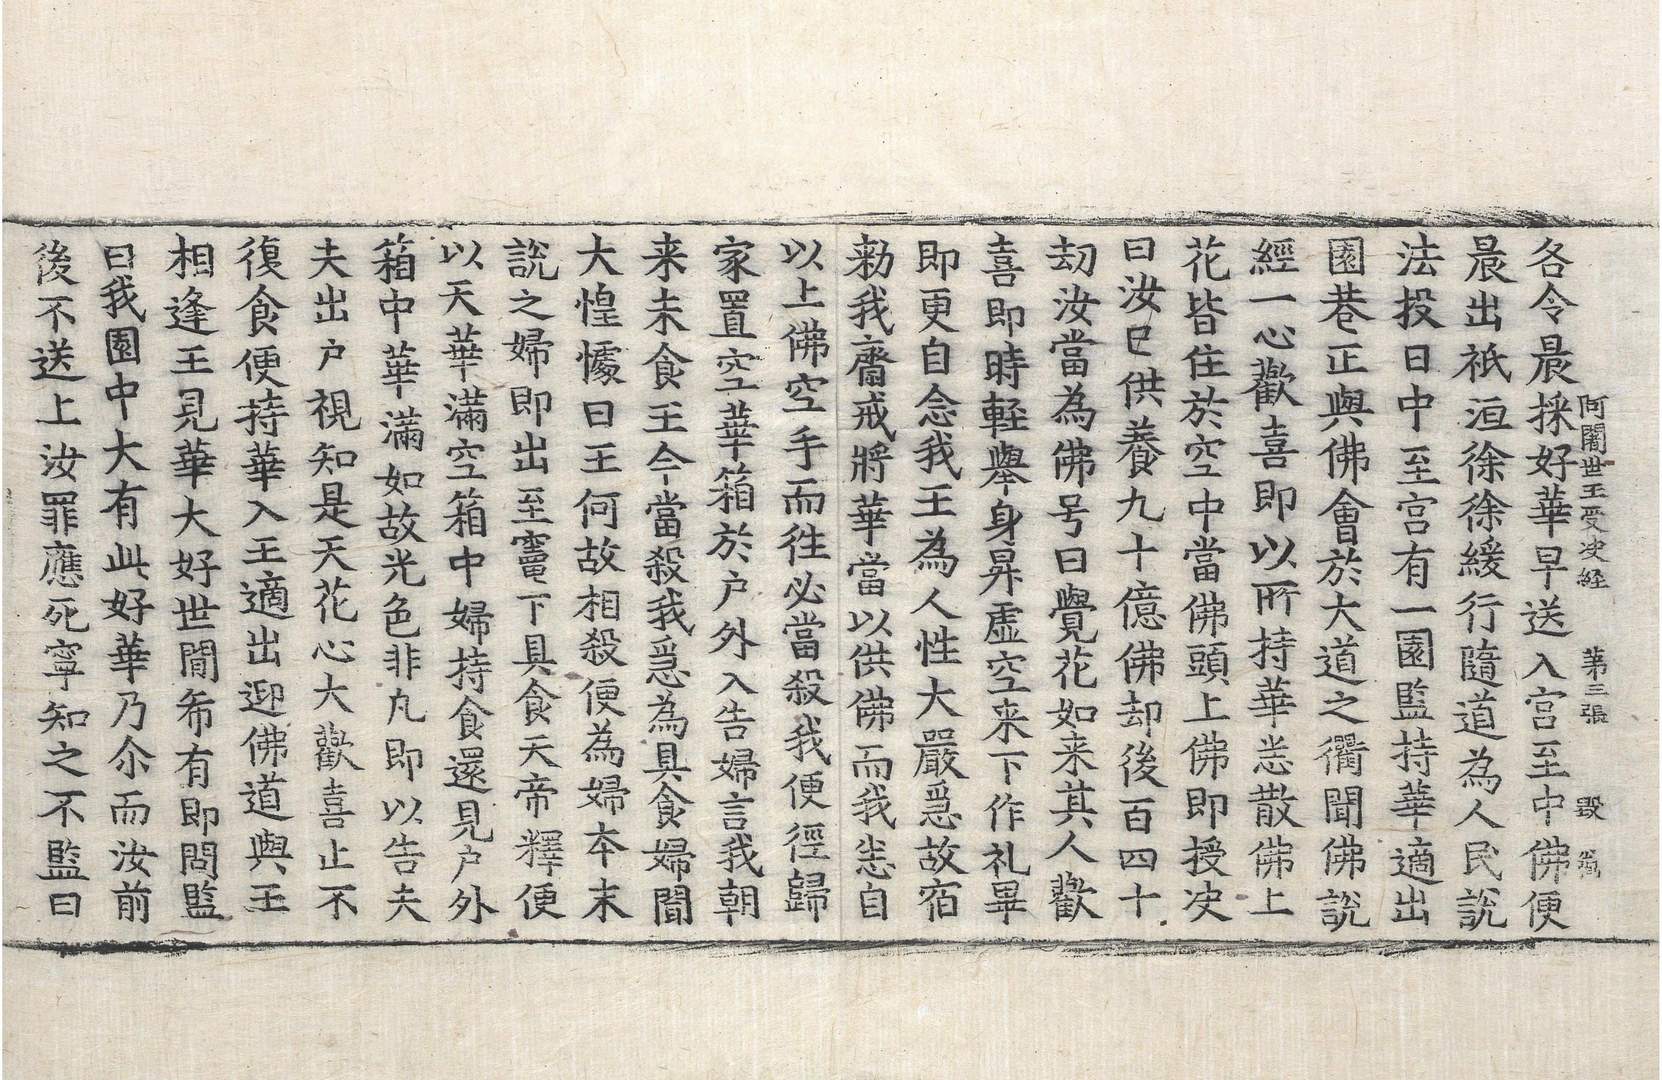 阿闍世王受决経 苐三張 毀
各令晨採好華早送入宮至中佛便
晨出祇洹徐徐緩行隨道為人民說
法投日中至宮有一園監持華適出
園巷正與佛會於大道之衢聞佛說
經一心歡喜即以所持華悉散佛上
花皆住於空中當佛頭上佛即授决
曰汝已供養九十億佛却後百四十
劫汝當為佛号曰覺花如来其人歡
喜即時軽舉身昇虛空来下作礼畢
即更自念我王為人性大嚴急故宿
勑我齋戒將華當以供佛而我悉自
以上佛空手而往必當殺我便徑歸
家置空華箱於户外入告婦言我朝
来未食王今當殺我急為具食婦聞
大惶懅曰王何故相殺便為婦本末
說之婦即出至竈下具食天帝釋便
以天華滿空箱中婦持食還見户外
箱中華滿如故光色非凡即以告夫
夫出户視知是天花心大歡喜止不
復食便持華入王適出迎佛道與王
相逢王見華大好世閒希有即問監
曰我園中大有此好華乃尒而汝前
後不送上汝罪應死寜知之不監曰